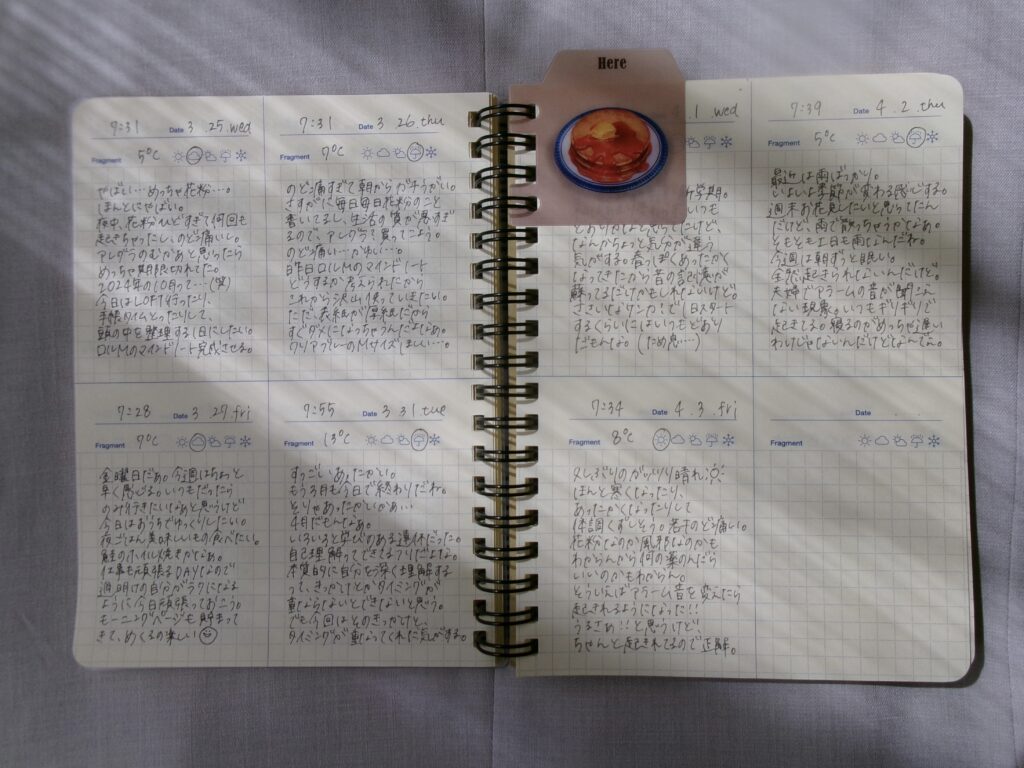 7:31 Date 3.25.wed
Fragment 5℃
やばい…めっちゃ花粉…。
ほんとにやばい。
夜中、花粉ひどすぎて何回も
起きちゃったし、のど痛いし。
アレグラのむかあと思ったら
めっちゃ期限切れてた。
2024年の10月って…(笑)
今日はLOFT行ったり、
手帳タイムとったりして、
頭の中を整理する1日にしたい。
ロルMのマインドノート完成させる。
7:31 Date 3.26.thu
Fragment 7℃
のど痛すぎて朝からガチうがい。
さすがに毎日毎日花粉のこと
書いてるし、生活の質が悪すぎ
るので、アレグラを買ってこよう。
のど痛い…かゆい…。
昨日ロルMのマインドノート
どうするか考えられたから
これから沢山使っていきたい。
ただ、表紙が厚紙だから
すぐダメになっちゃうんだよなあ。
クリアカバーのMサイズほしい…。
7:28 Date 3.27.fri
Fragment 9℃
金曜日だあ。今週はちょっと
早く感じる。いつもだったら
のみ行きたいなあと思うけど
今日はおうちでゆっくりしたい。
夜ごはん美味しいもの食べたい。
鮭のホイル焼きかなあ。
仕事も頑張るDAYなので
週明けの自分がラクになる
ように今日頑張っておこう。
モーニングページも貯まって
きて、めくるの楽しい
7:55 Date 3.31.tue
Fragment 13℃
すっごいあったかい。
もう3月も今日で終わりだね。
そりゃあったかいかあ…
4月だもんなあ。
いろいろと学びのある週末だった。
自己理解ってできてるつもりだけど
本質的に自分を深く理解する
って、きっかけとか タイミングが
重ならないとできないと思う。
でも今回はそのきっかけと、
タイミングが重なってくれた気がする。
Here
4.1.wed
新学期。
いつも
とあり
なんかちょっと気分が違う
気がする。春っぽくあったかく
なってきたから昔の記憶が
蘇ってるだけかもしれないけど。
1日スタート
するくらいにはいつもどおり
だもんな。(ため息…)
7:39 Date 4.2.thu
Fragment 5℃
最近は雨ばっかり。
いよいよ季節が変わる感じする。
週末お花見したいと思ってたん
だけど、雨で散っちゃうかなあ。
そもそも土日も雨なんだね。
今週は朝ずっと眠い。
全然起きられないんだけど。
夫婦でアラームの音が聞こえ
ない現象。いつもギリギリで
起きてる。寝るのがめっちゃ遅い
わけじゃないんだけどなんでだ。
7:34 Date 4.3.fri
Fragment 8℃
久しぶりのガッツリ晴れ
ほんと寒くなったり、
あったかくなったりして
体調くずしそう。若干のど痛い。
花粉なのか風邪なのかも
わからんから何の薬のんだら
いいのかもわからん。
そういえばアラーム音を変えたら
起きれるようになった!!
うるさあ!!と思うけど、
ちゃんと起きれてるので正解。
Date
Fragment